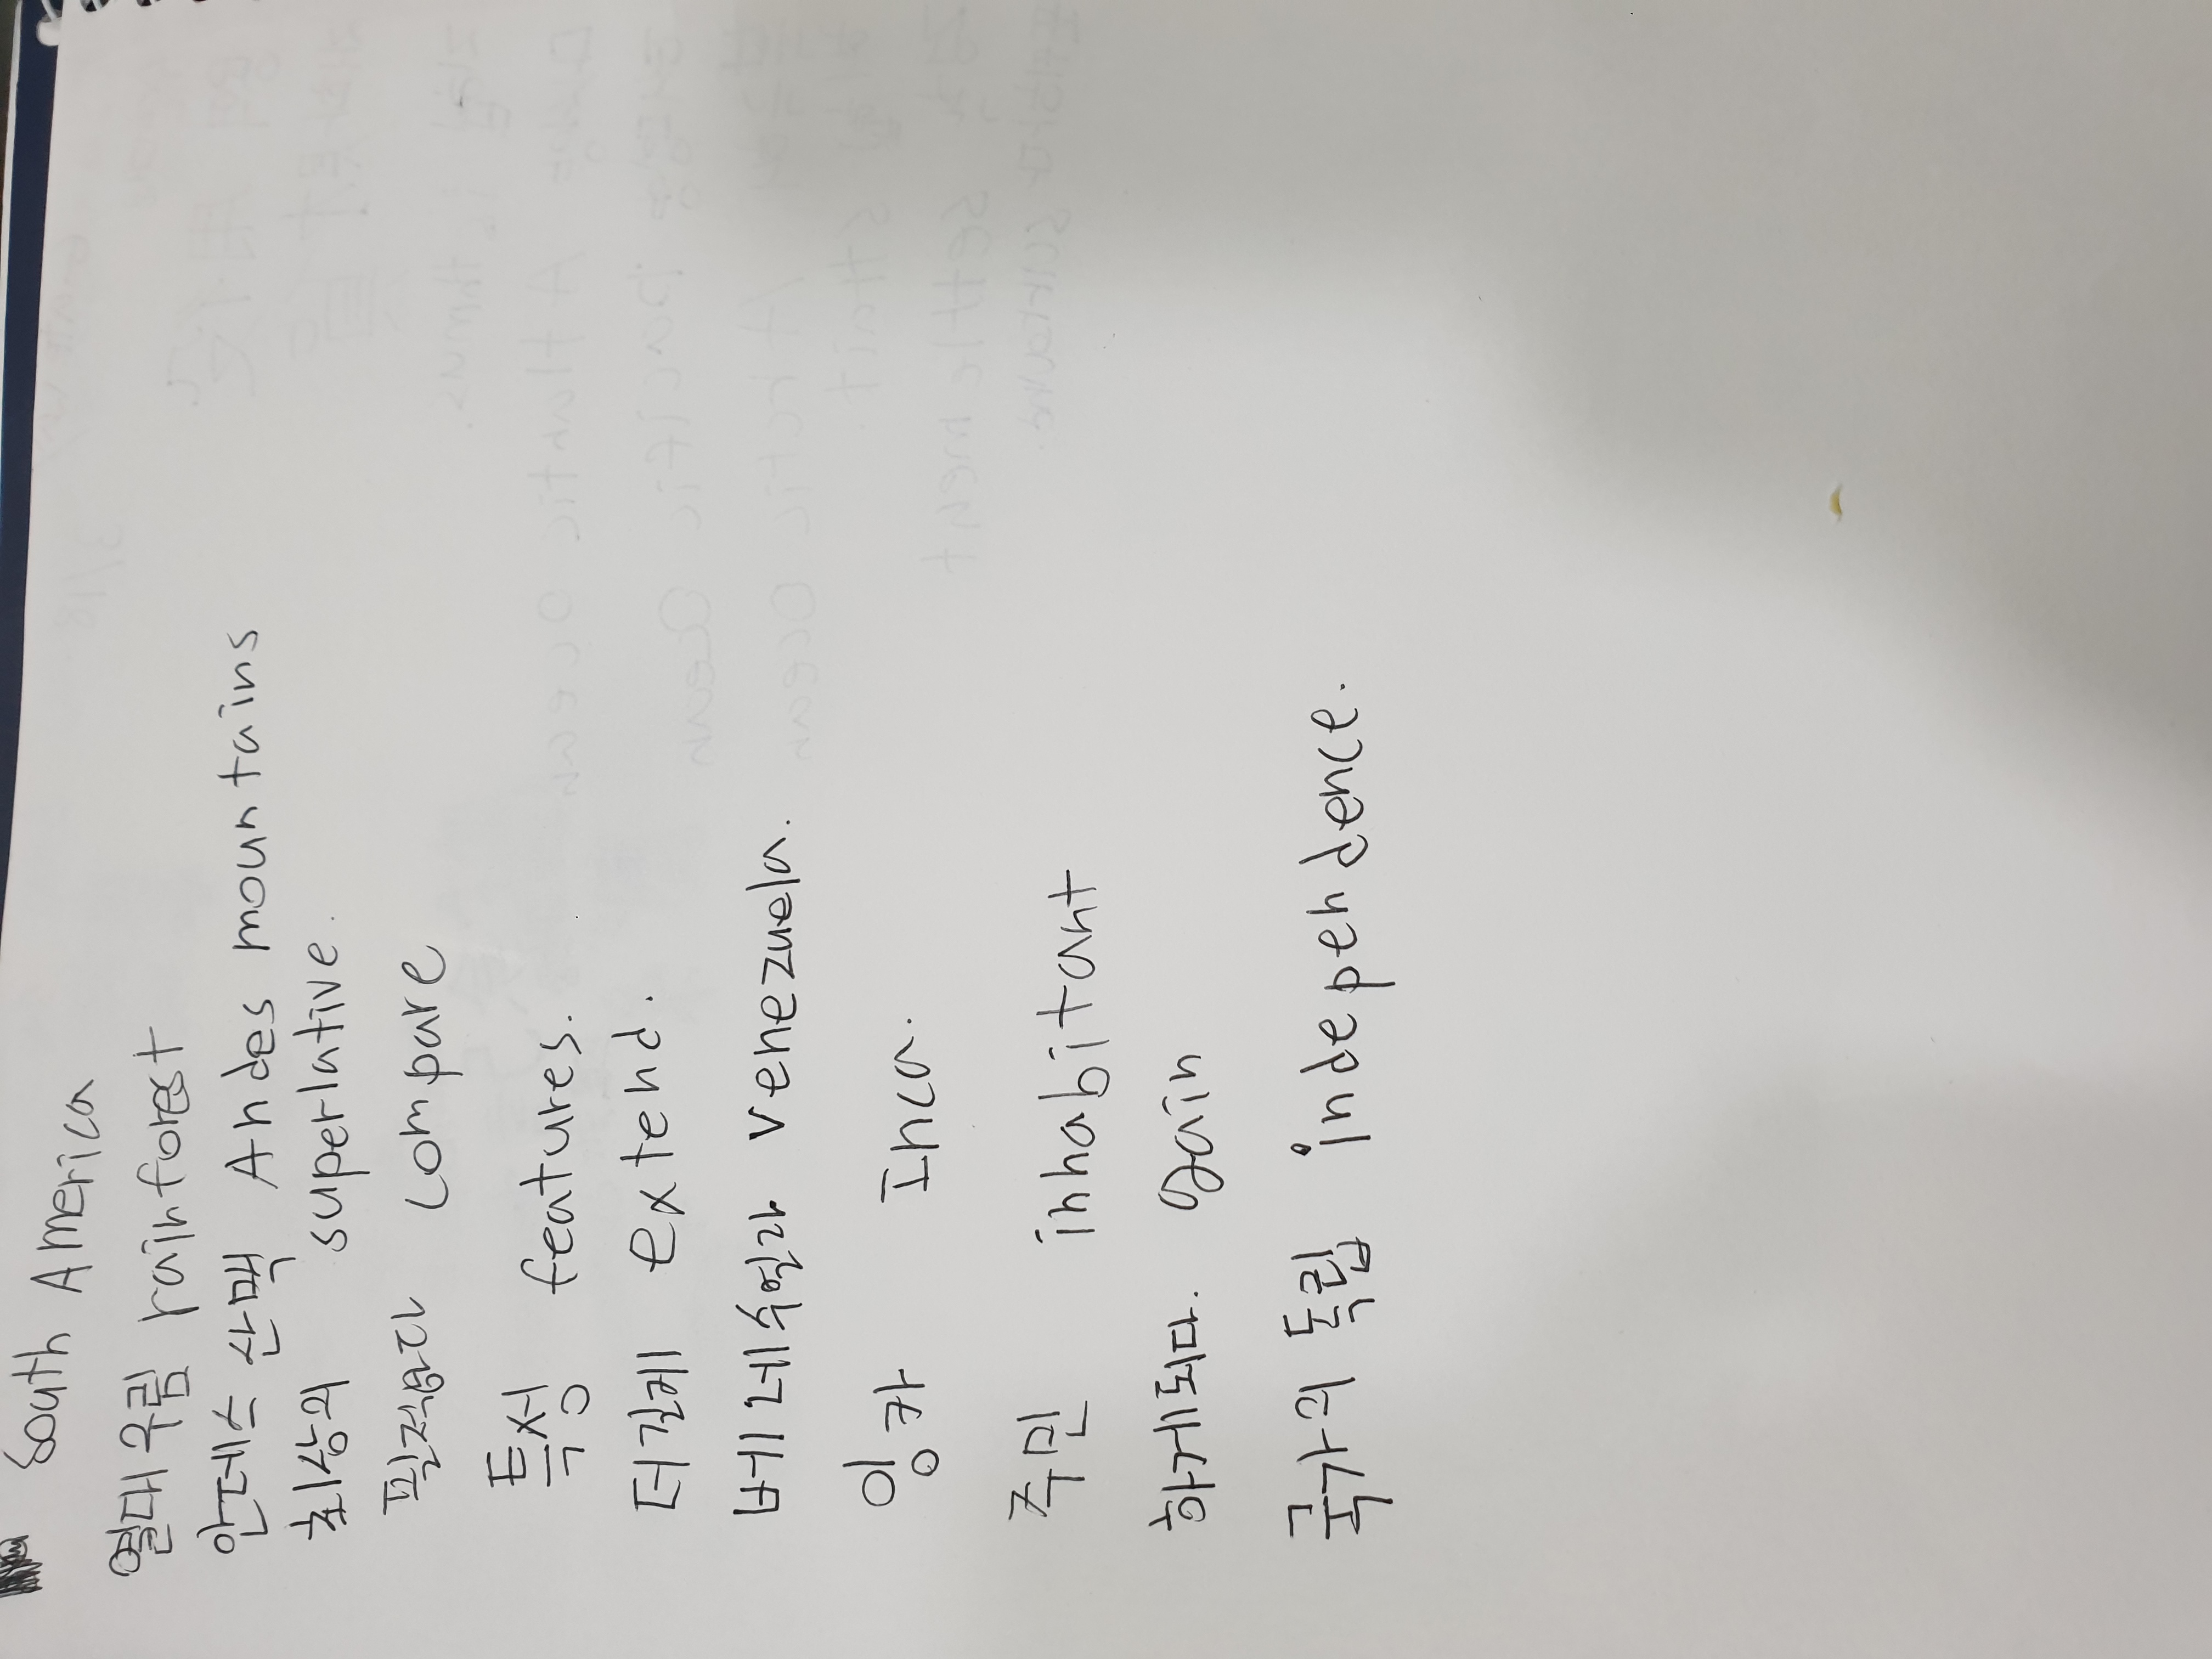 South America
열대우림 rainforest
안데스 산맥 Andes mountains
최상의 superlative.
compare
특징 features.
더길게 extend.
베네수엘라 venezuela.
잉카 Inca.
주민 inhabitant
하게되다. gain
국가의 독립 independence.